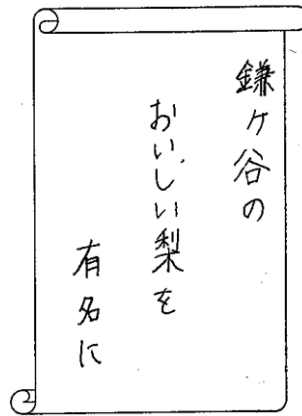 鎌ケ谷の
おいしい梨を
有名に